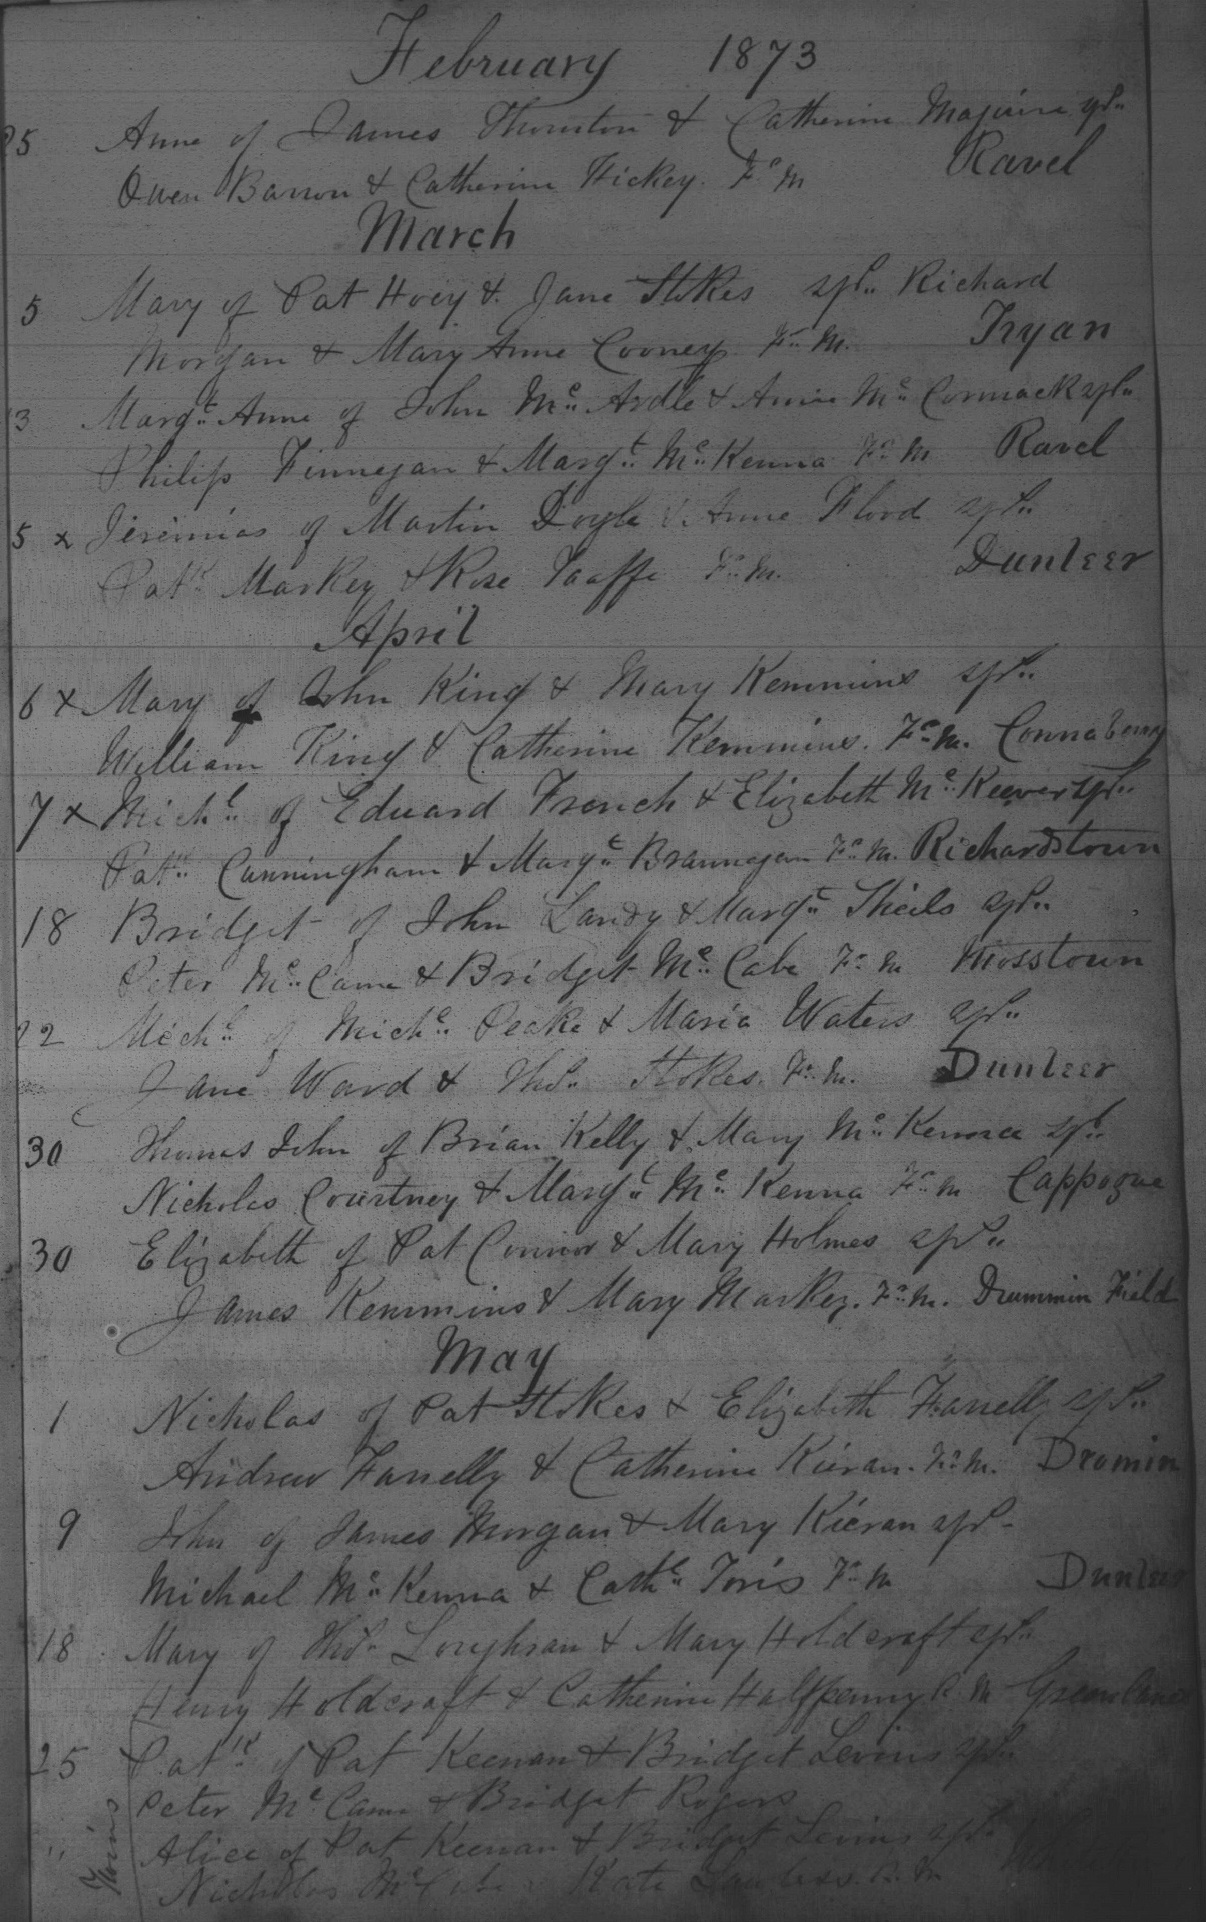 February 1873
25 Anne of James Thornton & Catherine Maguire sps.
Owen Barron & Catherine Hickey. Fr. M Ravel
March
5 Mary of Pat Hoey & Jane Stokes sps. Richard
Morgan & Mary Anne Cooney Fr. M. Tryan
13 Margt. Anne of John Mc. Ardle & Annie Mc. Cormack sps.
Philip Finnegan & Margt. Mc. Kenna Fr. M Ravel
5 x Jeremias of Martin Doyle & Anne Flood sps.
Patk. Markey & Rose Taaffe Fr. M. Dunleer
April
6 x Mary of John King & Mary Kemmins sps.
William King & Catherine Kemmins. Fr. M. Connaberry
7 x Michl. of Edward French & Elizabeth Mc. Keever sps.
Patk. Cunningham & Margt. Brannagan Fr. M. Richardstown
18 Bridget of John Landy & Margt. Sheils sps.
Peter Mc. Came & Bridget Mc. Cabe Fr. M Mosstown
22 Michl. of Michl. Peake & Maria Waters sps.
Jane Ward & Thos. Stokes. Fr. M. Dunleer
30 Thomas John of Brian Kelly & Mary Mc. Kenna sps.
Nicholas Courtney & Margt. Mc. Kenna Fr. M Cappogue
30 Elizabeth of Pat Connor & Mary Holmes sps.
James Kemmins & Mary Markey. Fr. M. Drummin Field
May
1 Nicholas of Pat Stokes & Elizabeth Farrelly sps.
Andrew Farrelly & Catherine Kieran. Fr. M. Dromin
9 John of James Morgan & Mary Kieran sps.
Michael Mc. Kenna & Cathe. Toris Fr. M Dunleer
18 Mary of Thos. Loughran & Mary Holdcraft sps.
Henry Holdcraft & Catherine Halfpenny R. M Greenlane
25 Patk. of Pat Keenan & Bridget Levins sps.
Peter Mc. Came & Bridget Rogers
Twins
" Alice of Pat Keenan & Bridget Levins sps.
Nicholas McCabe Kate Lawless. R. M